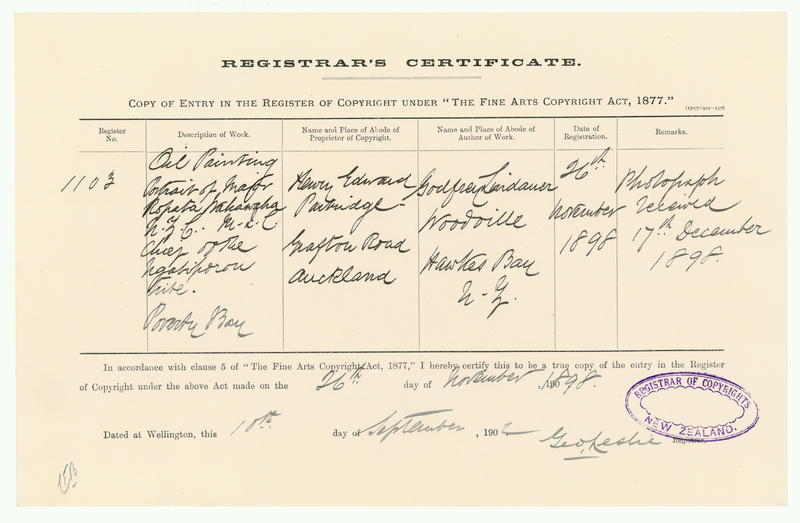 REGISTRAR'S CERTIFICATE.
COPY OF ENTRY IN THE REGISTER OF COPYRIGHT UNDER "THE FINE ARTS COPYRIGHT ACT, 1877."
Register No.
Description of Work.
Name and Place of Abode of Proprietor of Copyright.
Name and Place of Abode of Author of Work.
Date of Registration.
Remarks.
1103
Oil Painting
Portrait of Major
Ropata Wahawaha
N.Z.C. M.L.C
Chief of the
Ngatiporou
Tribe.
Poverty Bay
Henry Edward
Partridge
Grafton Road
Auckland
Godfrey Lindauer
Woodville
Hawkes Bay
N.Z.
26th
November
1898
Photograph
received
17th December
1898.
In accordance with clause 5 of "The Fine Arts Copyright Act, 1877," I hereby certify this to be a true copy of the entry in the Register
of Copyright under the above Act made on the 26th day of November, 1898.
REGISTRAR OF COPYRIGHTS
NEW ZEALAND.
Dated at Wellington, this 10th day of September, 1902
Geo. Leslie
Registrar.